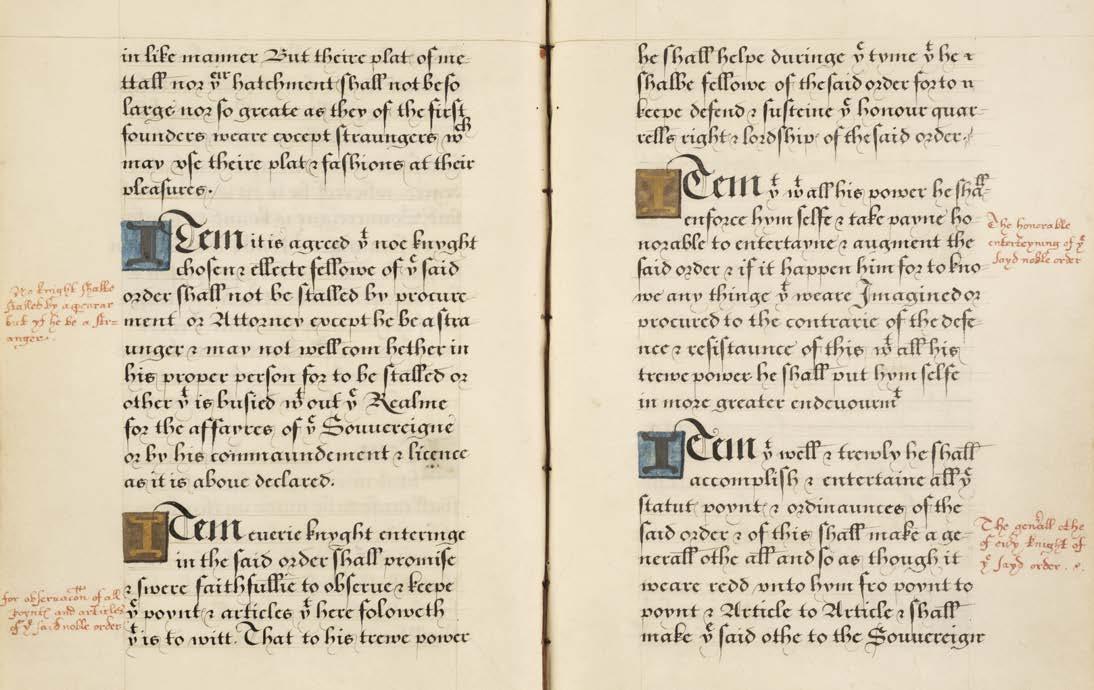 in like manner But theire plat of me-
ttall nor yͤⁱʳ hatchment shall not be so
large nor so greate as they of the first
founders weare except straungers wᶜʰ
may vse theire plat & fashions at their
pleasures.
ITem it is agreed yᵗ noe knyght
chosen & ellecte fellowe of yᵉ said
order shall not be stalled by procure-
ment or Attorney except he be a stra
unger & may not well com hether in
his proper person for to be stalled or
other yᵗ is busied wᵗout yᵉ Realme
for the affayres of yᵉ Souuereigne
or by his commaundement & licence
as it is aboue declared.
ITem euerie knyght enteringe
in the said order shall promise
& swere faithfullie to obserue & keepe
yᵉ poynt & articles yᵗ here foloweth
yᵗ is to witt. That to his trewe power
No knight shalbe
stalled by a
but yf he be a str=
anger.
for obseruacon of all
poyntes and articles
of yᵉ said noble order
he shall helpe duringe yᵉ tyme yᵗ he &
shalbe fellowe of the said order for to
keepe defend & susteine yᵉ honour quar-
rells right & lordship of the said order.
ITem yᵗ wᵗ all his power he shall
enforce hym selfe & take payne ho-
norable to entertayne & augment the
said order & if it happen him for to kno-
we any thinge yᵗ weare Imagined or
procured to the contrarie of the defe-
nce & resistaunce of this wᵗ all his
trewe power he shall put hym selfe
in more greater endeuourmᵗ
ITem yᵗ well & trewly he shall
accomplish & entertaine all yᵉ
statut poynt & ordinaunces of the
said order & of this shall make a ge-
nerall othe all and so as though it
weare redd vnto hym fro poynt to
poynt & Article to Article & shall
make yᵉ said othe to the Souuereign
The honorable
enterteyning of yᵉ
sayd noble order
The genᵉrall othe
of eu'y knight of
yᵉ sayd order.